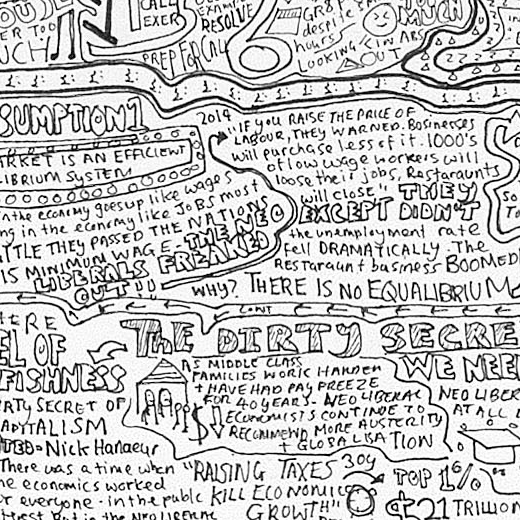 CALL
EXER
RESOLVE
PREP FOR CALL
despite
hours
LOOKING
OUT
MUCH
SUMPTION 1
MARKET IS AN EFFICIENT
LIBRIUM SYSTEM
in the economy goes up like wages
ng in the economy like JOBS most
TTLE THEY PASSED THE NATIONS
IS MINIMUM WAGE - THE NEO
LIBERALS FREAKED
OUT!!
2014
"IF YOU RAISE THE PRICE OF
LABOUR, THEY WARNED. Businesses
will purchase less of it. 1000's
of low wage workers will
loose their jobs, Restaraunts
will close" THEY
EXCEPT DIDN'T
the unemployment rate
fell DRAMATICALLY. The
RESTARAUNT business BOOMED
WHY? THERE IS NO EQUALIBRIUM
CONT
HERE
EL OF
FISHNESS
RTY SECRET OF
CAPITALISM
TED - Nick Hanaeur
There was a time when
he economics worked
r everyone - in the public
THE DIRTY SECRE
AS MIDDLE CLASS
FAMILIES WORK HARDER
+ HAVE HAD PAY FREEZE
FOR 40 YEARS - NEO LIBERAL
$ ECONOMISTS CONTINUE TO
RECOMMEND MORE AUSTERITY
+ GLOBALISATION
WE NEE
NEO LIBER
AT ALL
"RAISING TAXES 30y
KILL ECONOMIC
GROWTH"
TOP 1%
$21 TRILLION